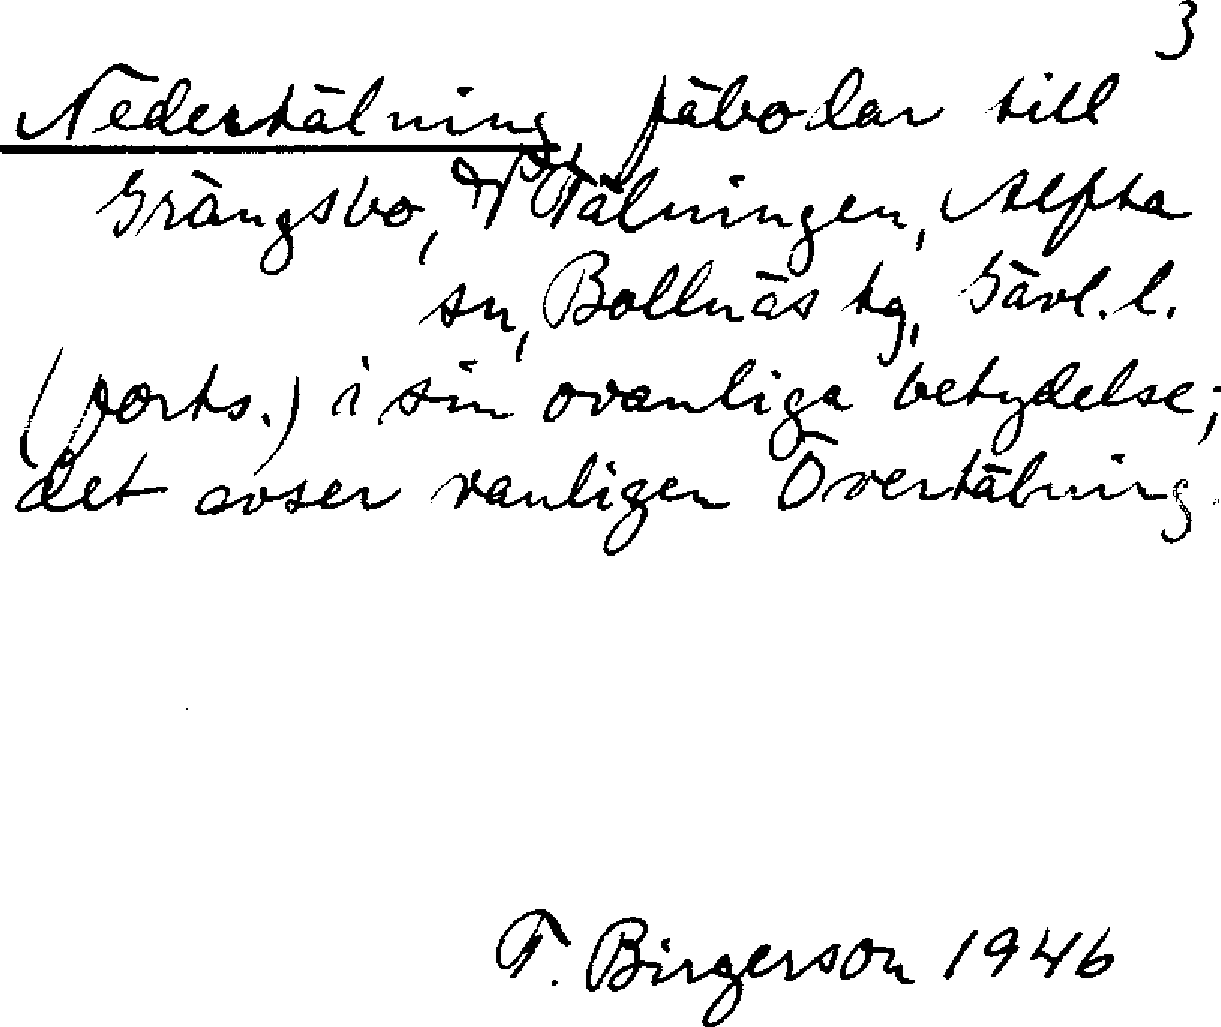 3
Nedertälning, fäbodar till
Grängsbo, V Tälningen, Alfta
sn, Bollnäs tg, Gävl. l.
(forts.) i sin ovanliga betydelse;
det avser vanligen Övertälning.
T. Birgerson 1946